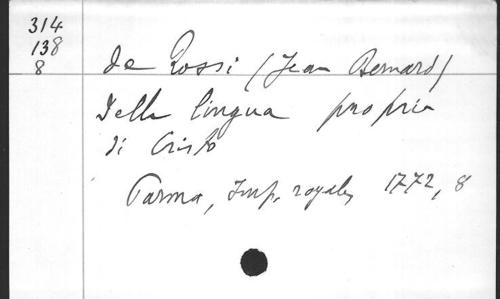 314
138
8
de Rossi (Jean Bernard)
Della lingua propria
di Cristo
Parma, Imp. royale, 1772, 8